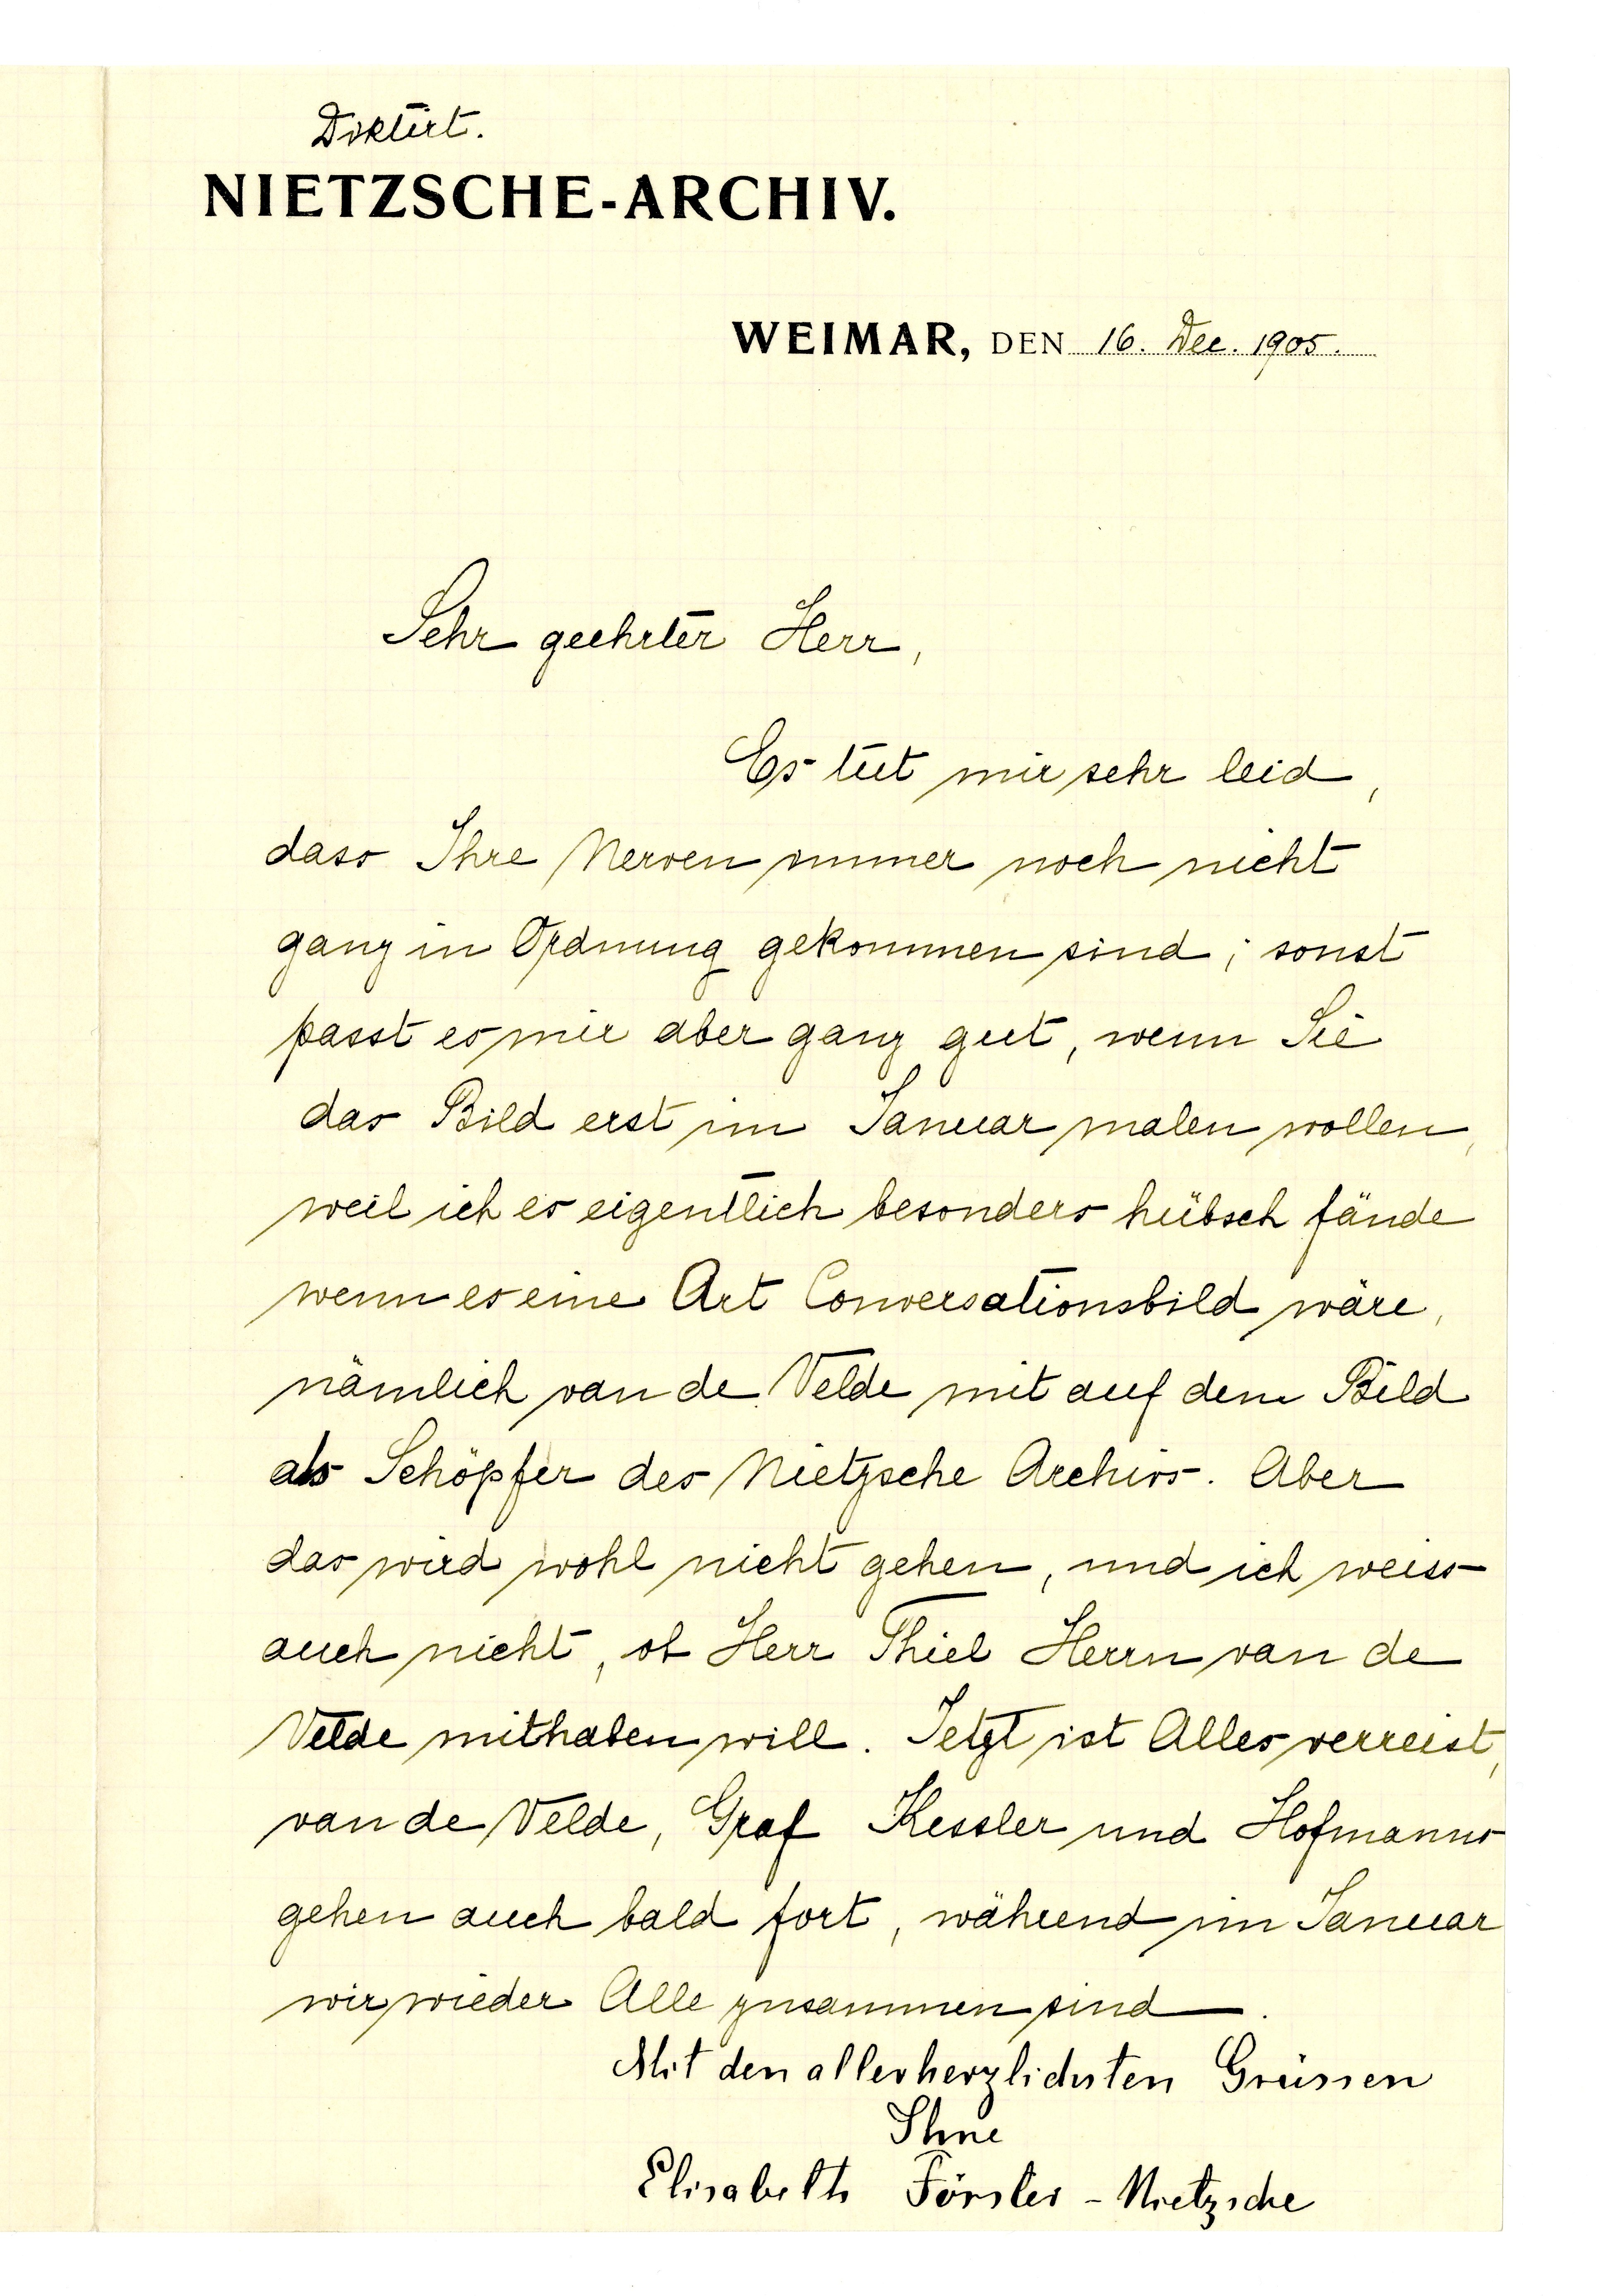 Diktirt.
NIETZSCHE-ARCHIV.
WEIMAR, DEN 16. Dec. 1905.
Sehr geehrter Herr,
Es tut mir sehr leid,
dass Ihre Nerven immer noch nicht
ganz in Ordnung gekommen sind; sonst
passt es mir aber ganz gut, wenn Sie
das Bild erst im Januar malen wollen,
weil ich es eigentlich besonders hübsch fände
wenn es eine Art Conversationsbild wäre,
nämlich van de Velde mit auf dem Bild
als Schöpfer des Nietzsche Archivs. Aber
das wird wohl nicht gehen, und ich weiss
auch nicht, ob Herr Thiel Herrn van de
Velde mithaben will. Jetzt ist Alles verreist,
van de Velde, Graf Kessler und Hofmanns
gehen auch bald fort, während im Januar
wir wieder Alle zusammen sind.
Mit den allerherzlichsten Grüssen
Ihre
Elisabeth Förster-Nietzsche